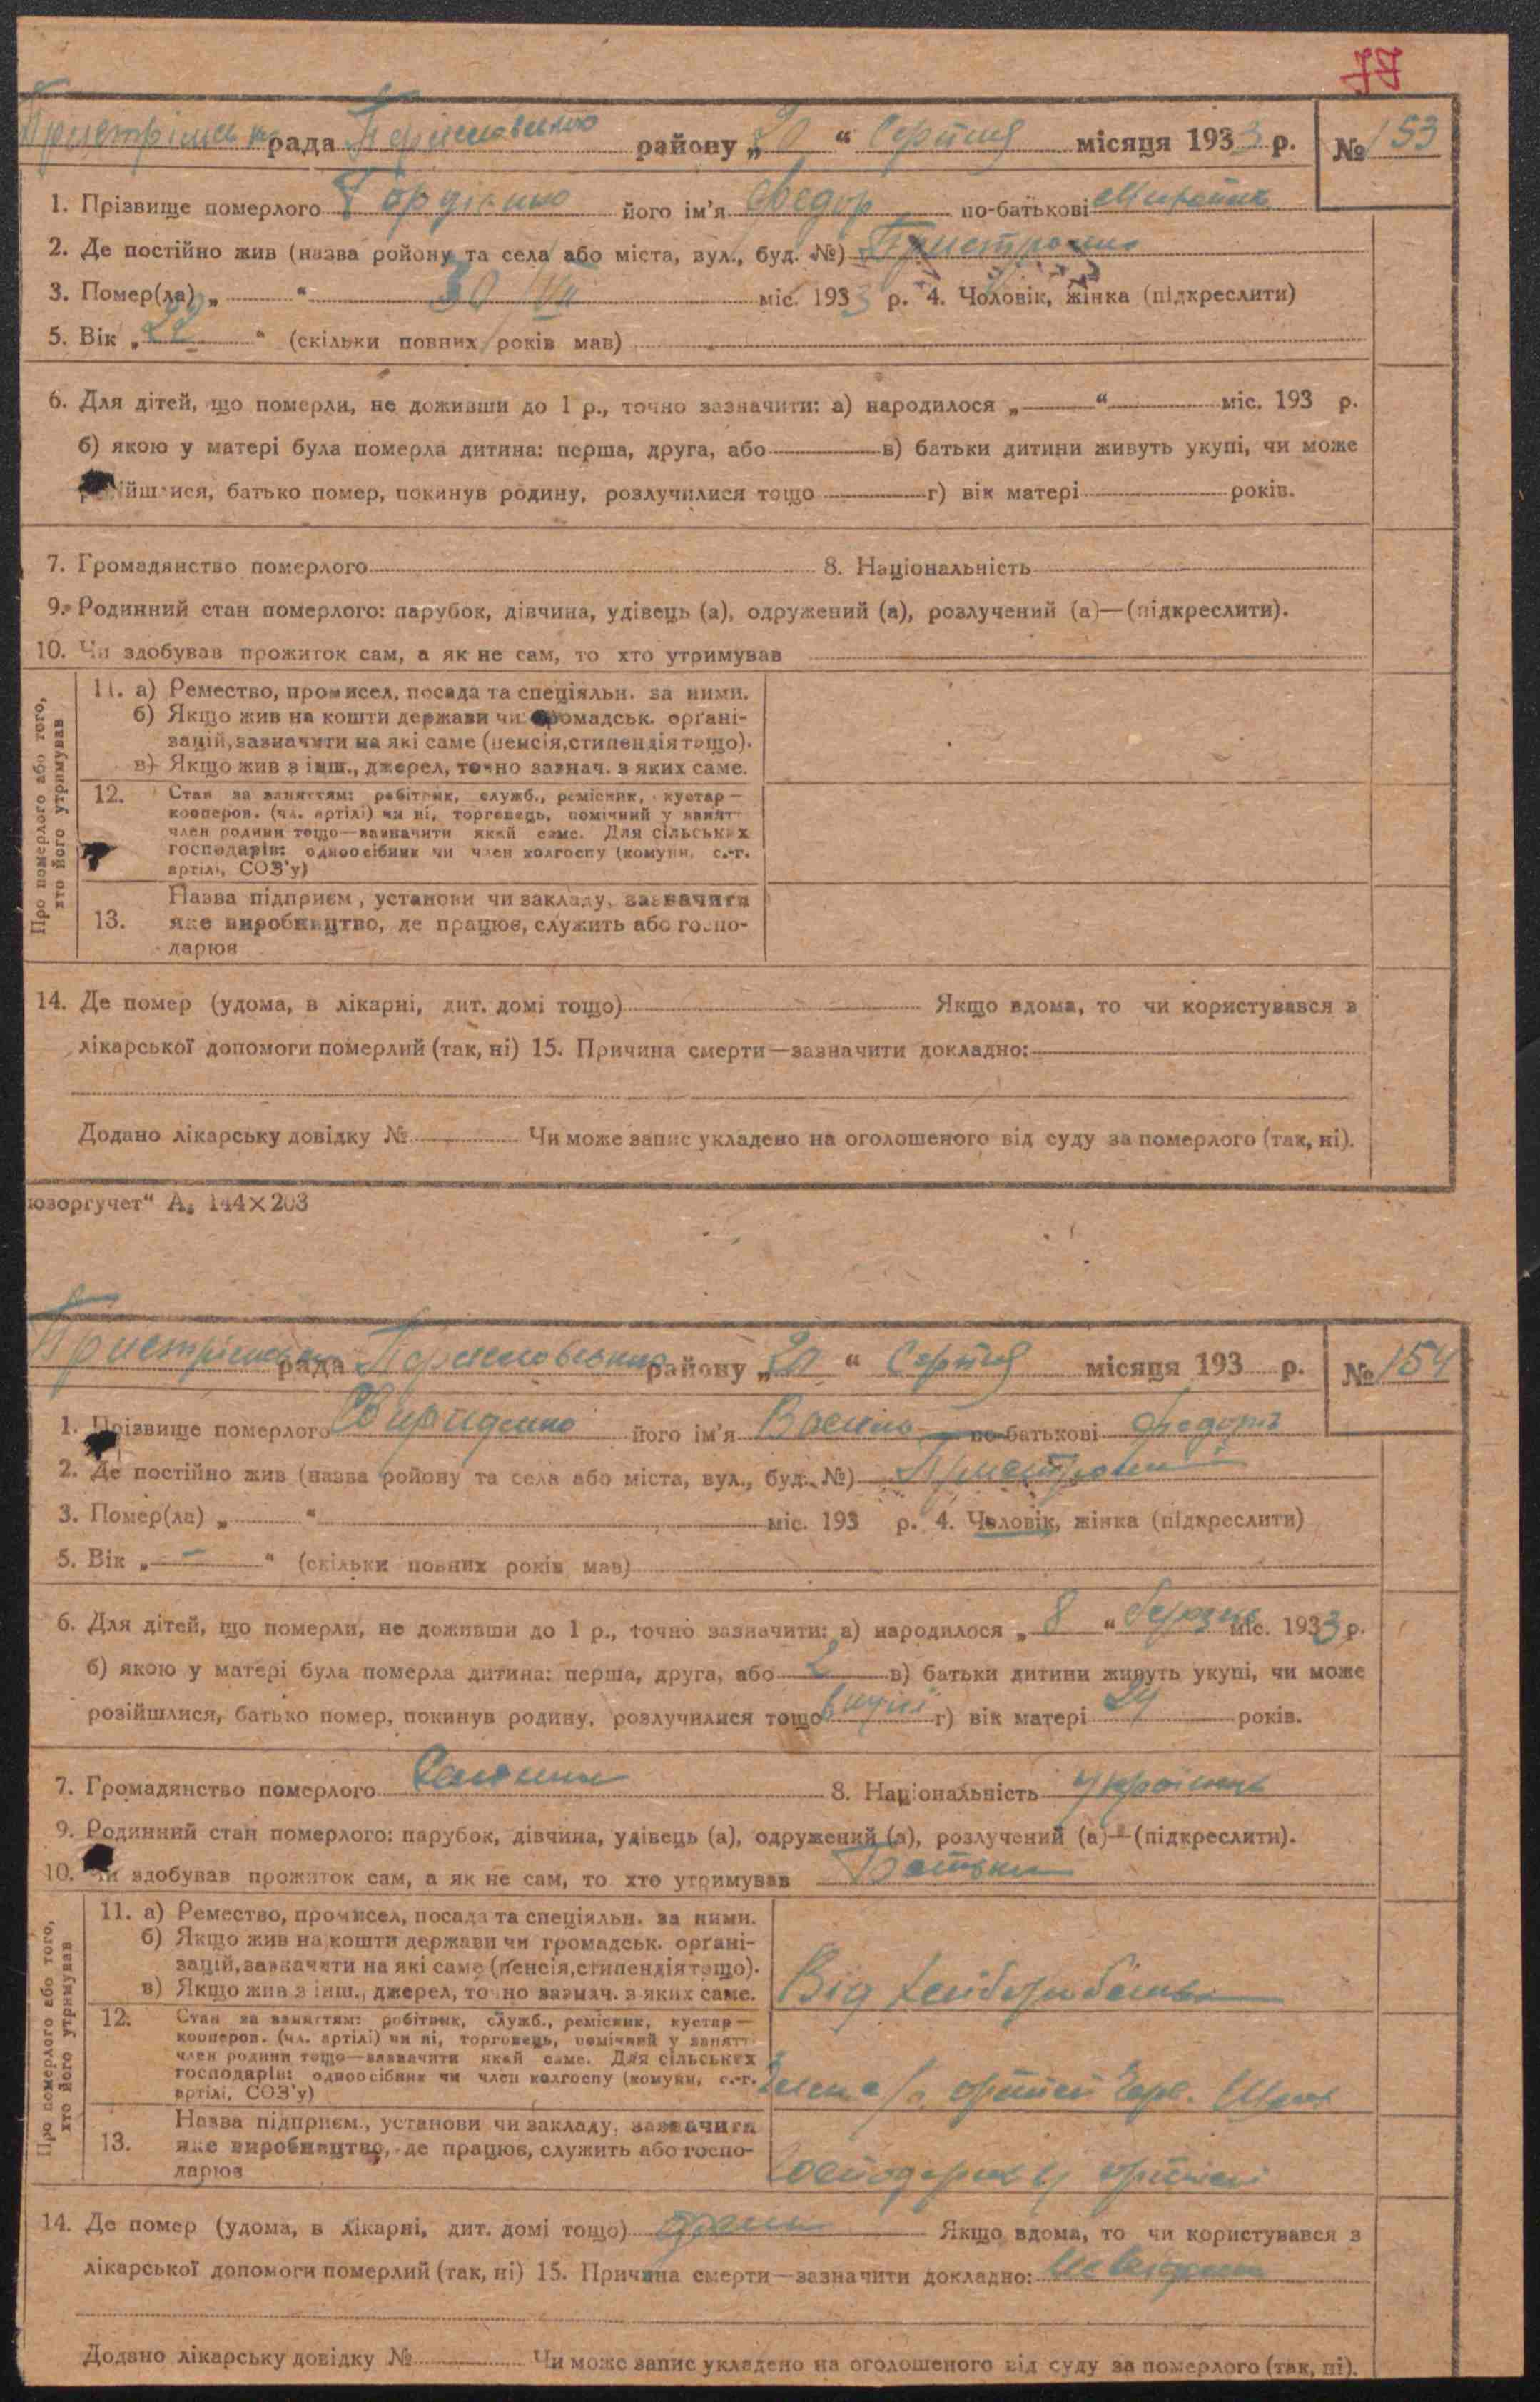 77
Пристрімська рада Переяславського району „20“ Серпня місяця 1933 р. № 153
1. Прізвище померлого Гордієнко його ім'я Федор по-батькові
2. Де постійно жив (назва ройону та села або міста, вул., буд. №) Пристроми
3. Помер(ла) „ “ 30/VII міс. 1933 р. 4. Чоловік, жінка (підкреслити)
5. Вік „ 22 “ (скільки повних років мав)
6. Для дітей, що померли, не доживши до 1 р., точно зазначити: а) народилося „ “ міс. 193 р.
б) якою у матері була померла дитина: перша, друга, або в) батьки дитини живуть укупі, чи може
розійшлися, батько помер, покинув родину, розлучилися тощо г) вік матері років.
7. Громадянство померлого 8. Національність
9. Родинний стан померлого: парубок, дівчина, удівець (а), одружений (а), розлучений (а)—(підкреслити).
10. Чи здобував прожиток сам, а як не сам, то хто утримував
Про померлого або того, хто його утримував
11. а) Ремество, промисел, посада та спеціяльн. за ними.
б) Якщо жив на кошти держави чи громадськ. орґані-
зацій, зазначити на які саме (пенсія, стипендія тощо).
в) Якщо жив з інш., джерел, точно зазнач. з яких саме.
12. Стан за заняттям: робітник, служб., ремісник, кустар—
кооперов. (чл. артілі) чи ні, торговець, помічний у занятт
член родини тощо—зазначити який саме. Для сільських
господарів: одноосібник чи член колгоспу (комуни, с.-г.
артілі, СОЗ'у)
13. Назва підприєм., установи чи закладу, зазначити
яке виробництво, де працює, служить або госпо-
дарює
14. Де помер (удома, в лікарні, дит. домі тощо) Якщо вдома, то чи користувався з
лікарської допомоги померлий (так, ні) 15. Причина смерти—зазначити докладно:
Додано лікарську довідку № Чи може запис укладено на оголошеного від суду за померлого (так, ні).
юзоргучет“ А₅ 144×203
Пристрімська рада Переяславського району „20“ Серпня місяця 193 р. № 154
1. Прізвище померлого Свириденко його ім'я Василь по-батькові Федорів
2. Де постійно жив (назва ройону та села або міста, вул., буд. №) Пристроми
3. Помер(ла) „ “ міс. 193 р. 4. Чоловік, жінка (підкреслити)
5. Вік „ — “ (скільки повних років мав)
6. Для дітей, що померли, не доживши до 1 р., точно зазначити: а) народилося „ 8 “ березня міс. 1933 р.
б) якою у матері була померла дитина: перша, друга, або 2 в) батьки дитини живуть укупі, чи може
розійшлися, батько помер, покинув родину, розлучилися тощо вкупі г) вік матері 24 років.
7. Громадянство померлого 8. Національність Українець
9. Родинний стан померлого: парубок, дівчина, удівець (а), одружений (а), розлучений (а)—(підкреслити).
10. Чи здобував прожиток сам, а як не сам, то хто утримував Батьки
Про померлого або того, хто його утримував
11. а) Ремество, промисел, посада та спеціяльн. за ними.
б) Якщо жив на кошти держави чи громадськ. орґані-
зацій, зазначити на які саме (пенсія, стипендія тощо).
в) Якщо жив з інш., джерел, точно зазнач. з яких саме. Від хліборобства
12. Стан за заняттям: робітник, служб., ремісник, кустар—
кооперов. (чл. артілі) чи ні, торговець, помічний у занятт
член родини тощо—зазначити який саме. Для сільських
господарів: одноосібник чи член колгоспу (комуни, с.-г.
артілі, СОЗ'у) Член с/г артілі Черв. Шлях
13. Назва підприєм., установи чи закладу, зазначити
яке виробництво, де працює, служить або госпо-
дарює Господарює у артілі
14. Де помер (удома, в лікарні, дит. домі тощо) Якщо вдома, то чи користувався з
лікарської допомоги померлий (так, ні) 15. Причина смерти—зазначити докладно: Не відомо
Додано лікарську довідку № Чи може запис укладено на оголошеного від суду за померлого (так, ні).